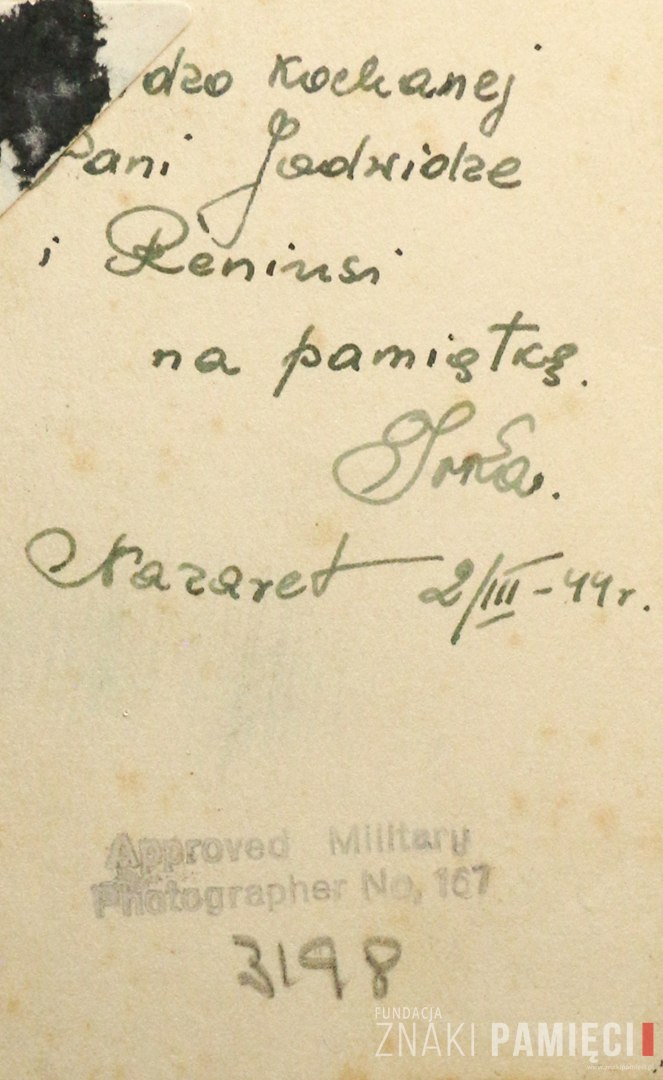 dzo kochanej
Pani Jadwidze
i Reniusi
na pamiątkę.
Irka.
Nazaret 2/III-44r.
Approved Military
Photographer No, 167
3198
FUNDACJA
ZNAKI PAMIĘCI